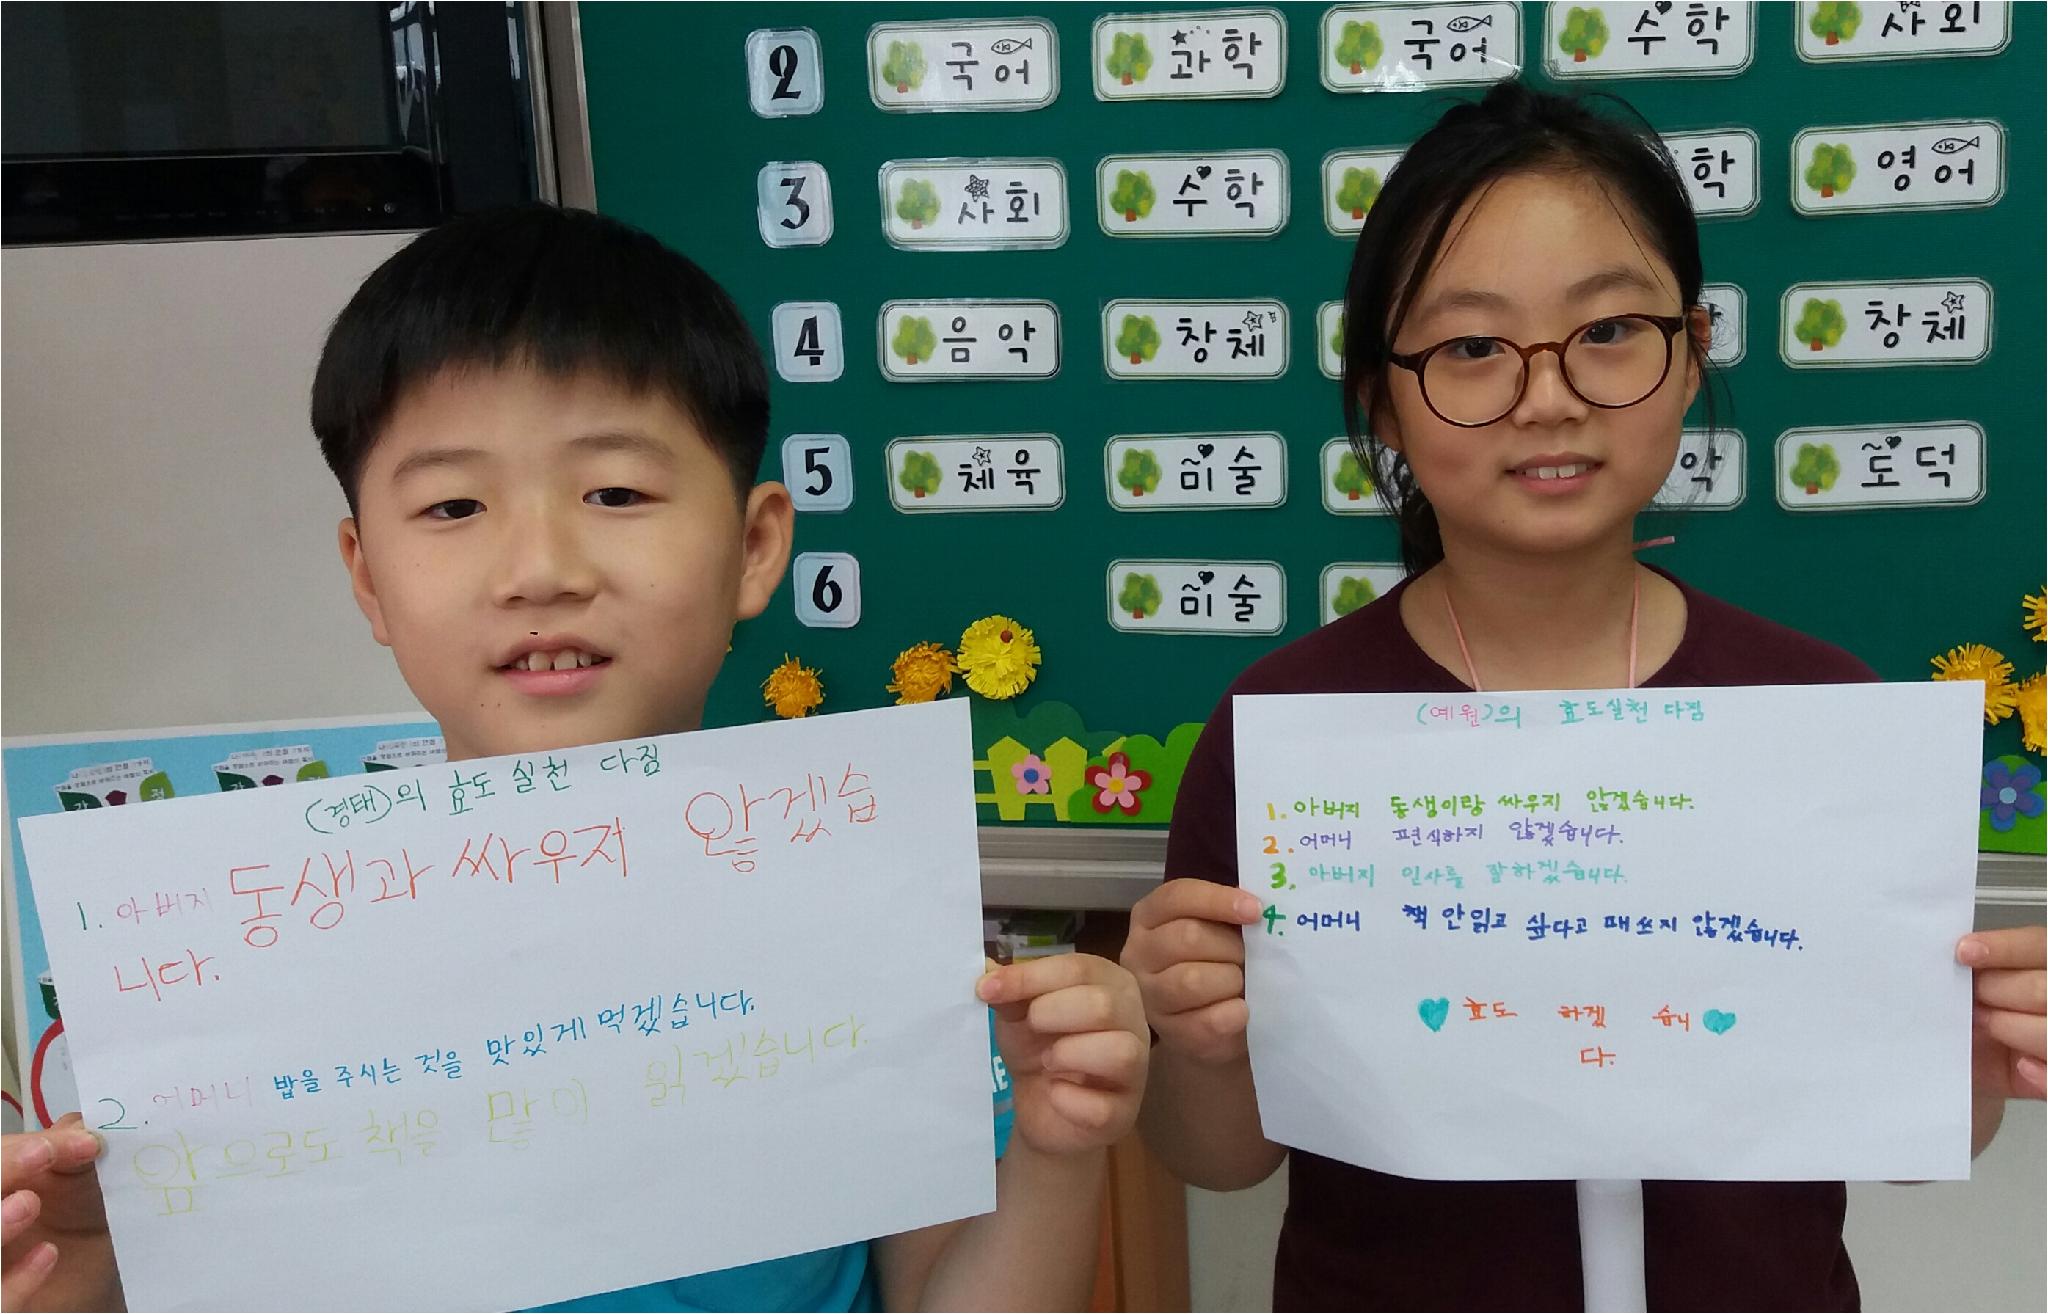 2 국어 과학 국어 수학 사회
3 사회 수학 학 영어
4 음악 창체 창체
5 체육 미술 악 도덕
6 미술
(경태)의 효도 실천 다짐
1. 아버지 동생과 싸우지 않겠습
니다.
2. 어머니 밥을 주시는 것을 맛있게 먹겠습니다.
앞으로도 책을 많이 읽겠습니다.
(예원)의 효도실천 다짐
1. 아버지 동생이랑 싸우지 않겠습니다.
2. 어머니 편식하지 않겠습니다.
3. 아버지 인사를 잘하겠습니다.
4. 어머니 책 안읽고 싶다고 떼쓰지 않겠습니다.
효도 하겠 습니
다.